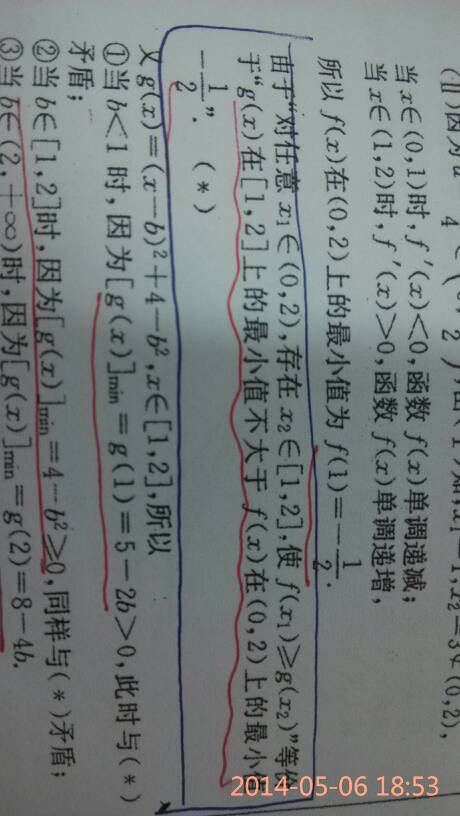 (Ⅱ)因为a
4
2
知,x₁=1,x₂=3∉(0,2),
当x∈(0,1)时,f′(x)<0,函数f(x)单调递减;
当x∈(1,2)时,f′(x)>0,函数f(x)单调递增,
所以f(x)在(0,2)上的最小值为f(1)=-1/2.
由于“对任意x₁∈(0,2),存在x₂∈[1,2],使f(x₁)≥g(x₂)”等价
于“g(x)在[1,2]上的最小值不大于f(x)在(0,2)上的最小值
-1/2”. (*)
又g(x)=(x-b)²+4-b²,x∈[1,2],所以
①当b<1时,因为[g(x)]min=g(1)=5-2b>0,此时与(*)
矛盾;
②当b∈[1,2]时,因为[g(x)]min=4-b²≥0,同样与(*)矛盾;
③当b∈(2,+∞)时,因为[g(x)]min=g(2)=8-4b.
2014-05-06 18:53